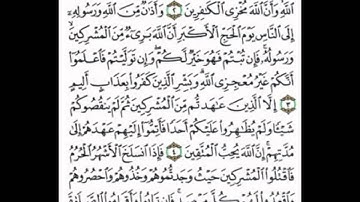 ٱللَّهِ وَأَنَّ ٱللَّهَ مُخْزِى ٱلْكَٰفِرِينَ ٢ وَأَذَٰنٌ مِّنَ ٱللَّهِ وَرَسُولِهِۦٓ
إِلَى ٱلنَّاسِ يَوْمَ ٱلْحَجِّ ٱلْأَكْبَرِ أَنَّ ٱللَّهَ بَرِىٓءٌ مِّنَ ٱلْمُشْرِكِينَ
وَرَسُولُهُۥ فَإِن تُبْتُمْ فَهُوَ خَيْرٌ لَّكُمْ وَإِن تَوَلَّيْتُمْ فَٱعْلَمُوٓا۟
أَنَّكُمْ غَيْرُ مُعْجِزِى ٱللَّهِ وَبَشِّرِ ٱلَّذِينَ كَفَرُوا۟ بِعَذَابٍ أَلِيمٍ
٣ إِلَّا ٱلَّذِينَ عَٰهَدتُّم مِّنَ ٱلْمُشْرِكِينَ ثُمَّ لَمْ يَنقُصُوكُمْ
شَيْـًٔا وَلَمْ يُظَٰهِرُوا۟ عَلَيْكُمْ أَحَدًا فَأَتِمُّوٓا۟ إِلَيْهِمْ عَهْدَهُمْ إِلَىٰ
مُدَّتِهِمْ إِنَّ ٱللَّهَ يُحِبُّ ٱلْمُتَّقِينَ ٤ فَإِذَا ٱنسَلَخَ ٱلْأَشْهُرُ ٱلْحُرُمُ
فَٱقْتُلُوا۟ ٱلْمُشْرِكِينَ حَيْثُ وَجَدتُّمُوهُمْ وَخُذُوهُمْ وَٱحْصُرُوهُمْ